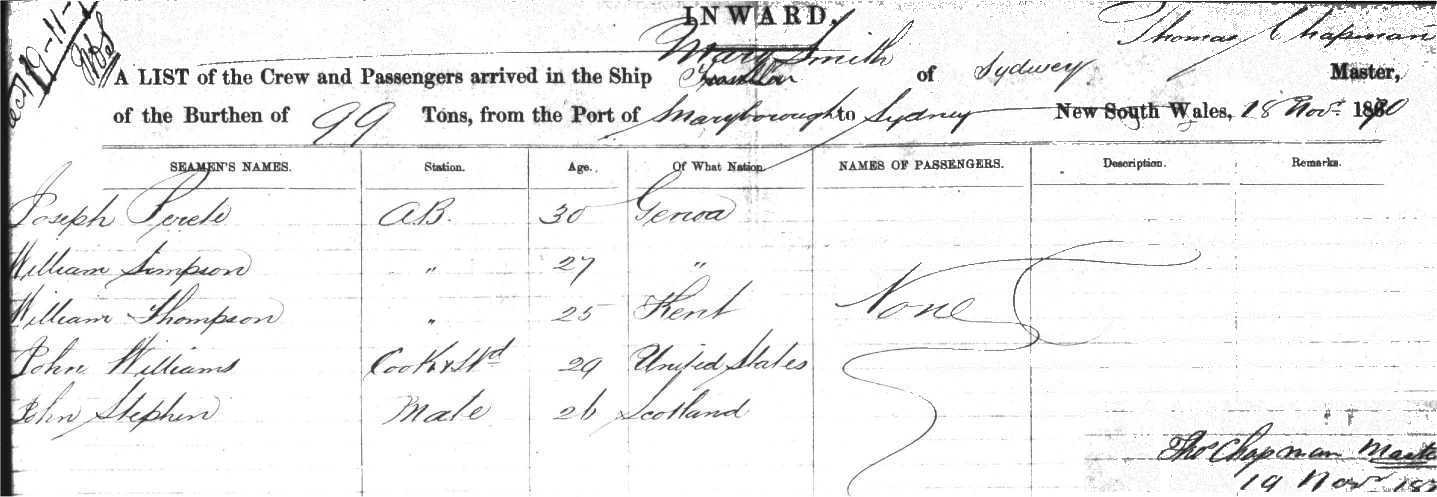 INWARD.
19-11-
Mary Smith
Thomas Chapman
A LIST of the Crew and Passengers arrived in the Ship of Sydney Master,
of the Burthen of 99 Tons, from the Port of Maryborough to Sydney New South Wales, 18 Novr. 1870
SEAMEN'S NAMES. Station. Age. Of What Nation. NAMES OF PASSENGERS. Description. Remarks.
Joseph A.B. 30 Genoa
William Simpson " 27 "
William Thompson " 25 Kent None
John Williams Cook & Std 29 United States
John Stephen Mate 26 Scotland
Thos Chapman Maste
19 Novr 187